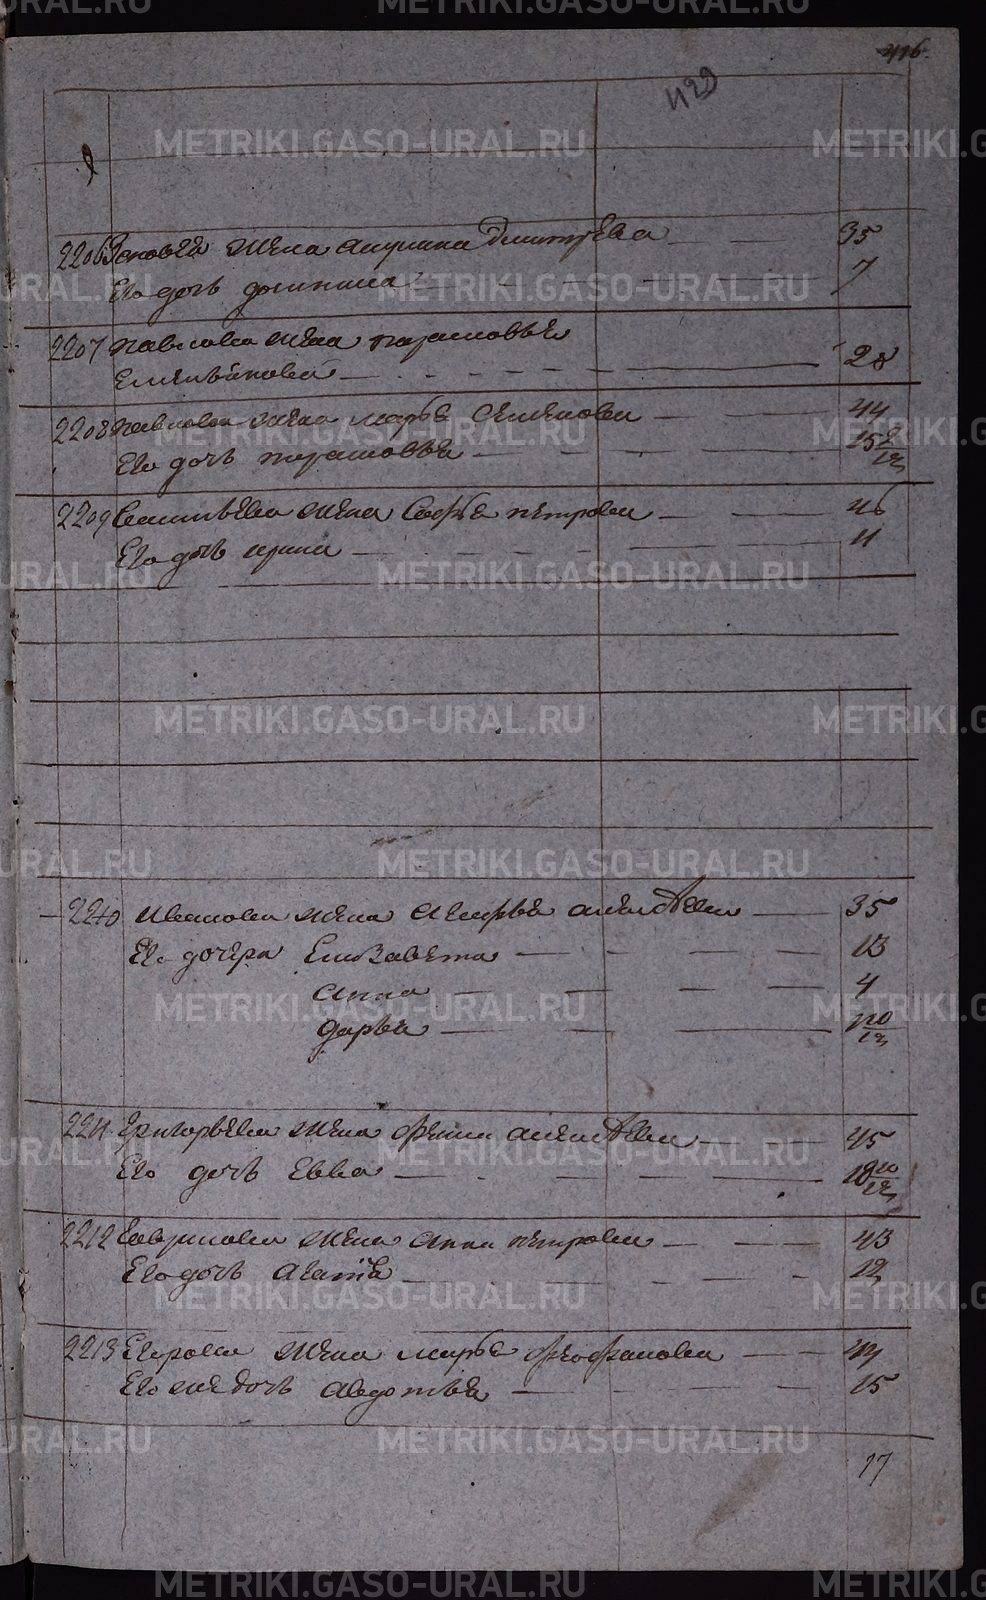 416.
1129
2206 Яковлева жена Акулина Дмитрева 35
Его дочь Домникия 7
2207 Павлова жена Парасковья
Емельянова 28
2208 Павлова жена Марья Семенова 44
Его дочь Парасковья 15
2209 Савельева жена Софья Петрова 46
Его дочь Ирина 11
2210 Иванова жена Агафья Алексеева 35
Его дочери Елизавета 13
Анна 4
Дарья 10/12
2211 Григорьева жена Фекла Алексеева 45
Его дочь Евва 18 10/12
2212 Гаврилова жена Анна Петрова 43
Его дочь Агапия 12
2213 Егорова жена Марья Феофанова 44
Его же дочь Авдотья 15
17
METRIKI.GASO-URAL.RU